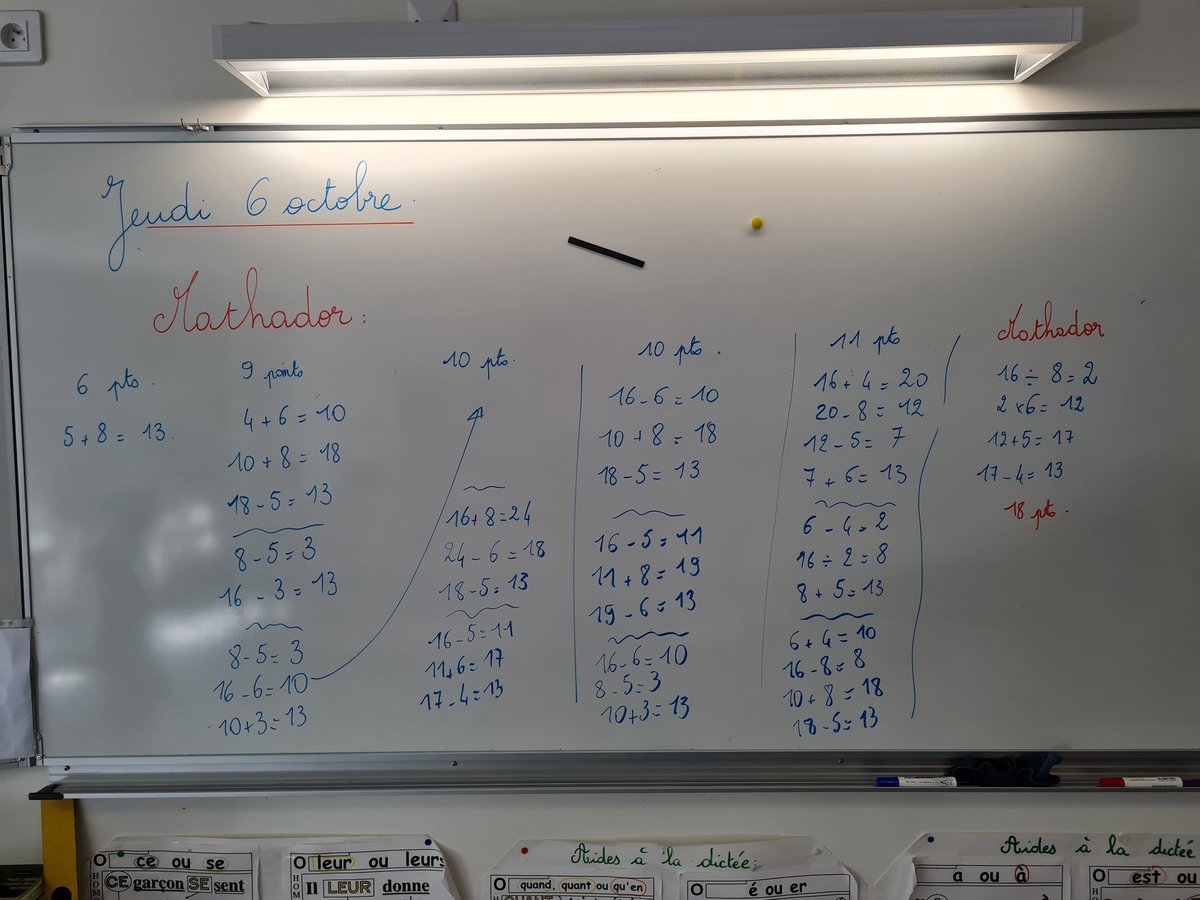 Jeudi 6 octobre
Mathador :
6 pts.
5 + 8 = 13.
9 points
4 + 6 = 10
10 + 8 = 18
18 - 5 = 13
8 - 5 = 3
16 - 3 = 13
8 - 5 = 3
16 - 6 = 10
10 + 3 = 13
10 pts.
16 + 8 = 24
24 - 6 = 18
18 - 5 = 13
16 - 5 = 11
11 + 6 = 17
17 - 4 = 13
10 pts.
16 - 6 = 10
10 + 8 = 18
18 - 5 = 13
16 - 5 = 11
11 + 8 = 19
19 - 6 = 13
16 - 6 = 10
8 - 5 = 3
10 + 3 = 13
11 pts
16 + 4 = 20
20 - 8 = 12
12 - 5 = 7
7 + 6 = 13
6 - 4 = 2
16 ÷ 2 = 8
8 + 5 = 13
6 + 4 = 10
16 - 8 = 8
10 + 8 = 18
18 - 5 = 13
Mathador
16 ÷ 8 = 2
2 × 6 = 12
12 + 5 = 17
17 - 4 = 13
18 pts.
ce ou se
CE garçon SE sent
leur ou leurs
Il LEUR donne
Aides à la dictée :
quand, quant ou qu'en
é ou er
Aides à la dictée
a ou à
est ou